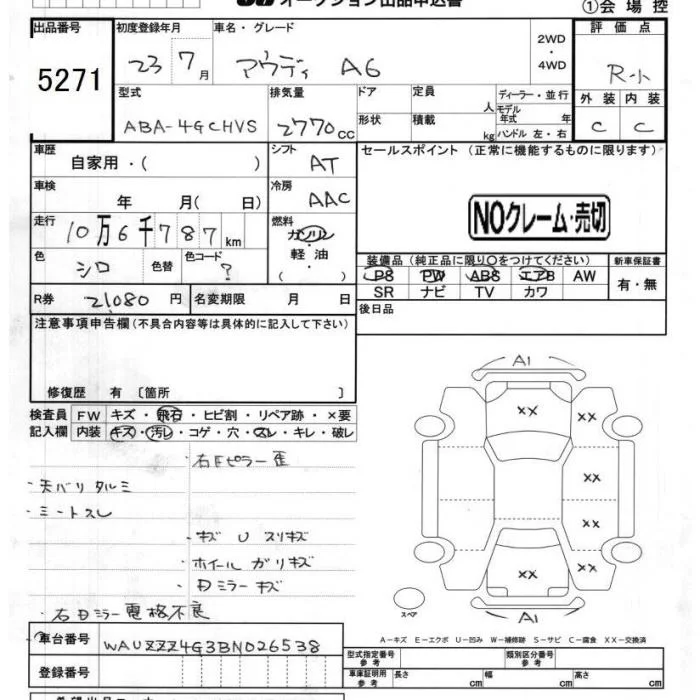 オークション出品申込書
①会 場 控
出品番号 初度登録年月 車名・グレード 2WD・4WD 評 価 点
5271 23 7月 アウディ A6 R-小
型式 排気量 ドア 定員 人 ディーラー・並行 外 装 内 装
ABA-4GCHVS 2770cc 形状 積載 kg モデル年式 年 ハンドル 左・右 C C
車歴 自家用・( ) シフト AT セールスポイント (正常に機能するものに限ります)
車検 年 月( 日) 冷房 AAC
NOクレーム・売切
走行 10万6千787km 燃料 ガソリン 軽油
色 シロ 色替 色コード ? 装備品(純正品に限り○をつけてください) 新車保証書
PS PW ABS エアB AW 有・無
SR ナビ TV カワ
R券 21,080円 名変期限 月 日 後日品
注意事項申告欄(不具合内容等は具体的に記入して下さい)
修復歴 有〔箇所 〕
検査員 FW キズ・飛石・ヒビ割・リペア跡・×要
記入欄 内装 キズ・汚レ・コゲ・穴・スレ・キレ・破レ
A1
XX
XX
XX
XX
XX
A1
スペア
・右Fピラー歪
・天バリタルミ
・ミートスレ
・キズ U スリキズ
・ホイールガリキズ
・Dミラーキズ
・右Dミラー電格不良
A-キズ E-エクボ U-凹み W-補修跡 S-サビ C-腐食 XX-交換済
車台番号 WAUZZZ4G3BN026538 型式指定番号 参考 類別区分番号 参考
登録番号 車庫証明用 参考 長さ cm 幅 cm 高さ cm